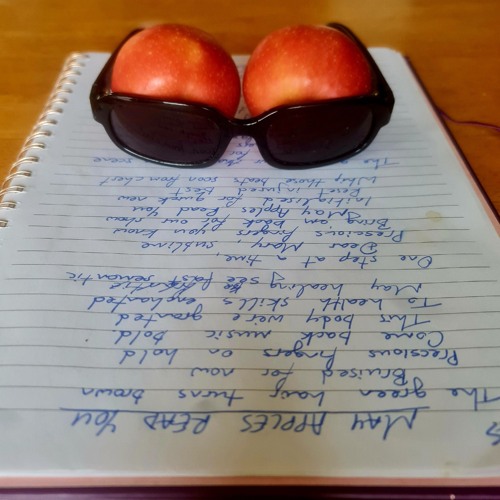 MAY APPLES READ YOU
The green hair turns brown
Bruised for now
Precsious fingers on hold
Come back music bold.
This body we're granted
To health skills enchanted
May healing see fast semantic
One step at a time,
Dear Mary, sublime
Precsious fingers you know
Bring em, back for our show
May Apples Read you
initialised for quick new
Reset injured best
Why those beats soon from chest
The scene
for